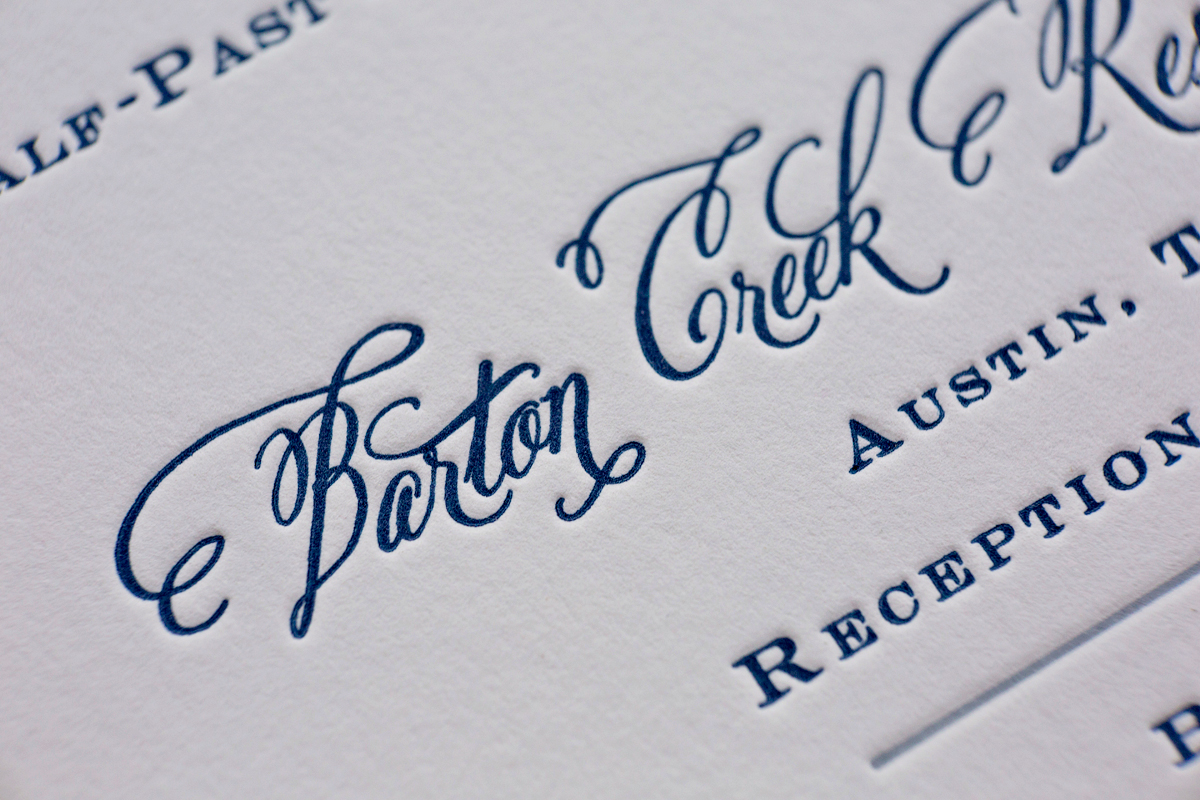 ALF-PAST
Barton Creek Re
AUSTIN, T
RECEPTION